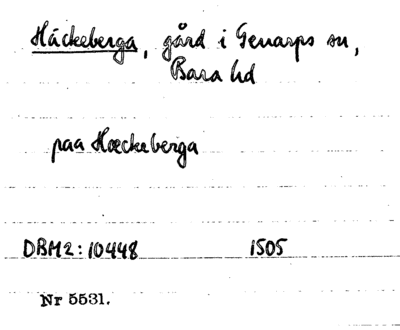 Häckeberga, gård i Genarps sn,
Bara hd
paa Hæckeberga
DBM2:10448 1505
Nr 5531.